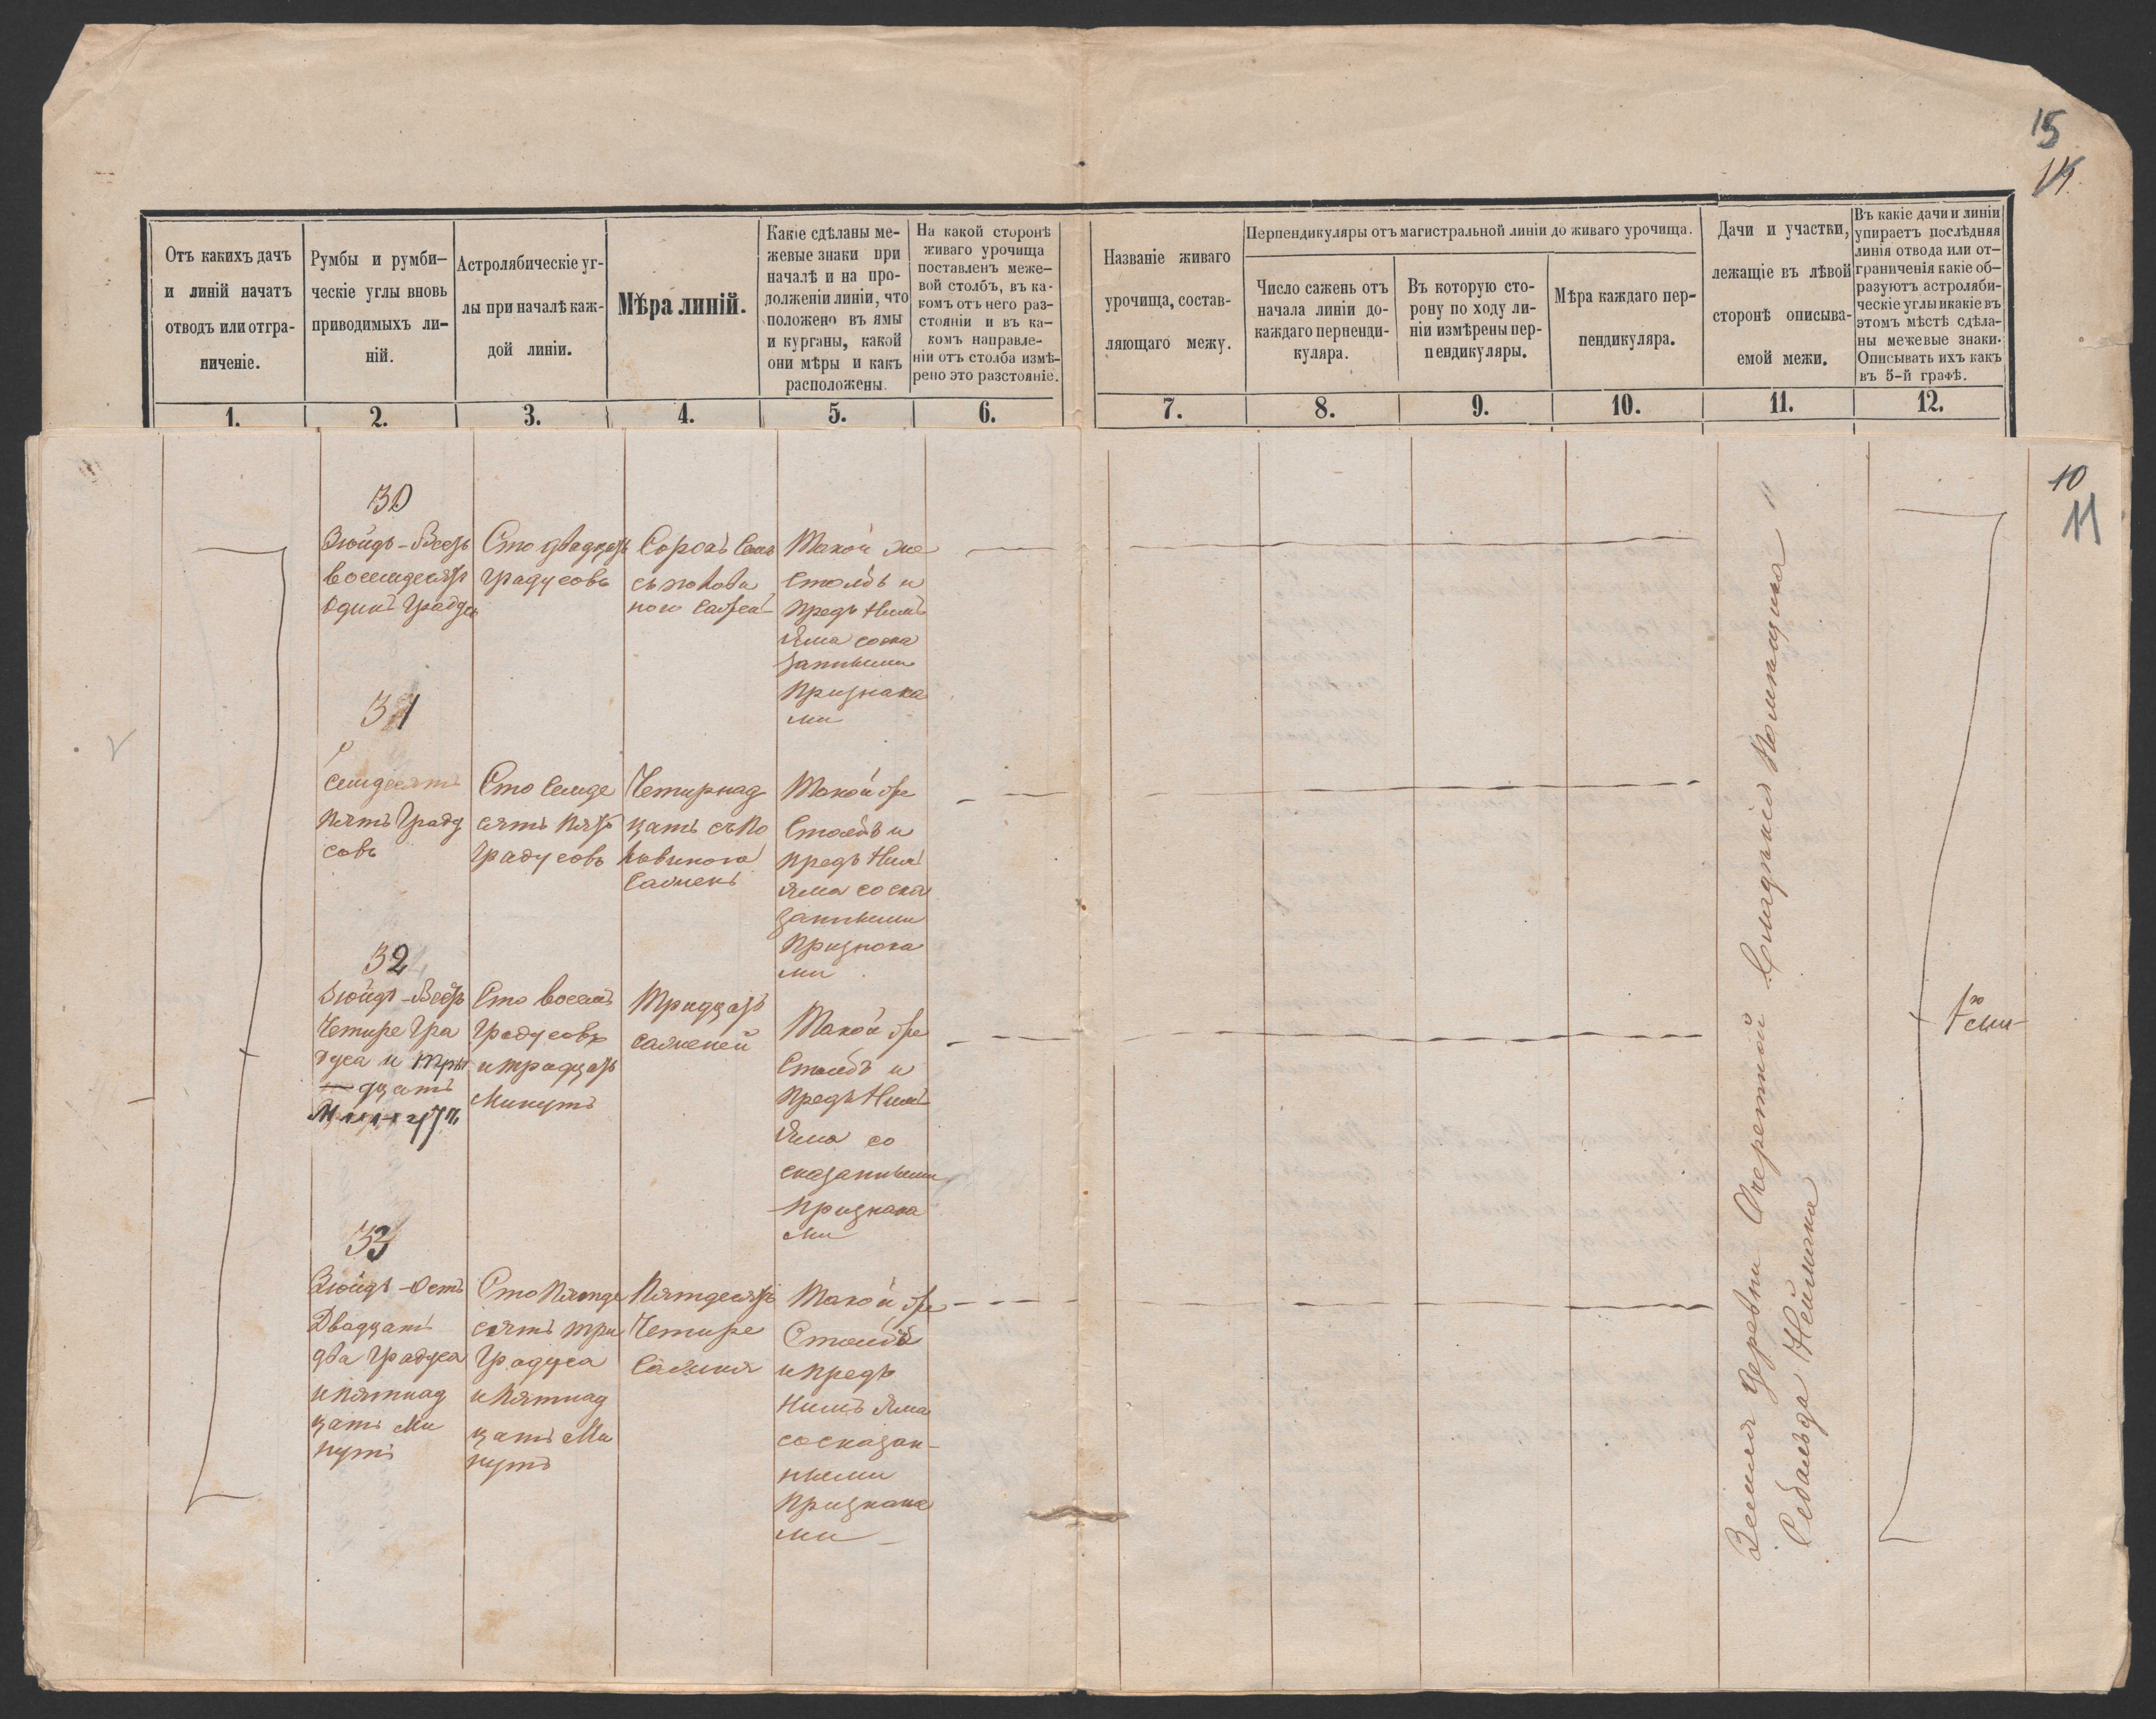 15
14
Отъ какихъ дачъ
и линій начатъ
отводъ или отгра-
ниченіе.
Румбы и румби-
ческіе углы вновь
приводимыхъ ли-
ній.
Астролябическіе уг-
лы при началѣ каж-
дой линіи.
Мѣра линій.
Какіе сдѣланы ме-
жевые знаки при
началѣ и на про-
долженіи линіи, что
положено въ ямы
и курганы, какой
они мѣры и какъ
расположены.
На какой сторонѣ
живаго урочища
поставленъ меже-
вой столбъ, въ ка-
комъ отъ него раз-
стояніи и въ ка-
комъ направле-
ніи отъ столба измѣ-
рено это разстояніе.
Названіе живаго
урочища, состав-
ляющаго межу.
Перпендикуляры отъ магистральной линіи до живаго урочища.
Число сажень отъ
начала линіи до
каждаго перпенди-
куляра.
Въ которую сто-
рону по ходу ли-
ніи измѣрены пер-
пендикуляры.
Мѣра каждаго пер-
пендикуляра.
Дачи и участки,
лежащіе въ лѣвой
сторонѣ описыва-
емой межи.
Въ какіе дачи и линіи
упираетъ послѣдняя
линія отвода или от-
граниченія какіе об-
разуютъ астроляби-
ческіе углы и какіе въ
этомъ мѣстѣ сдѣла-
ны межевые знаки.
Описывать ихъ какъ
въ 5-й графѣ.
1.
2.
3.
4.
5.
6.
7.
8.
9.
10.
11.
12.
10
11
30
Зюйдъ-Вестъ
восемдесятъ
одинъ Градусъ
Сто двадцать
Градусовъ
Сорокъ Семь
съ полови
ною Сажен
Такой же
Столбъ и
предъ Нимъ
Яма соска
занными
Признака
ми
31
Семдесятъ
Пять Граду
совъ
Сто Семде
сятъ Пять
Градусовъ
Четирнад
цать съ По
ловиною
Сажень
Такой же
Столбъ и
предъ Нимъ
Яма соска
занными
Признака
ми
32
Зюйдъ-Вестъ
Четире Гра
дуса и Три
дцать
Минутъ
Сто восемь
Градусовъ
и тридцать
Минутъ
Тридцать
саженей
Такой же
Столбъ и
Предъ Нимъ
Яма со
сказанными
Признака
ми
33
Зюйдъ-Остъ
Двадцать
два Градуса
и пятнад
цать Ми
нутъ
Сто Пятде
сятъ три
Градуса
и Пятнад
цать Ми
нутъ
Пятдесятъ
Четире
Сажня
Такой же
Столбъ
и предъ
Нимъ Яма
сосказан-
ными
Признака
ми
Земля деревни Очеретной Помѣщика